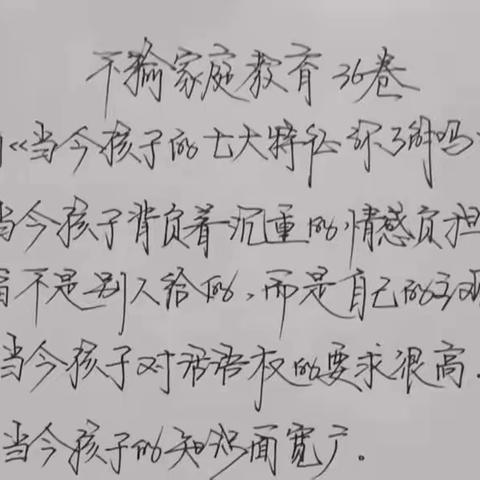 不输家庭教育 36卷
《当今孩子的七大特征你了解吗
当今孩子背负着沉重的情感负担
不是别人给的，而是自己的
当今孩子对话语权的要求很高.
当今孩子的知识面宽广。